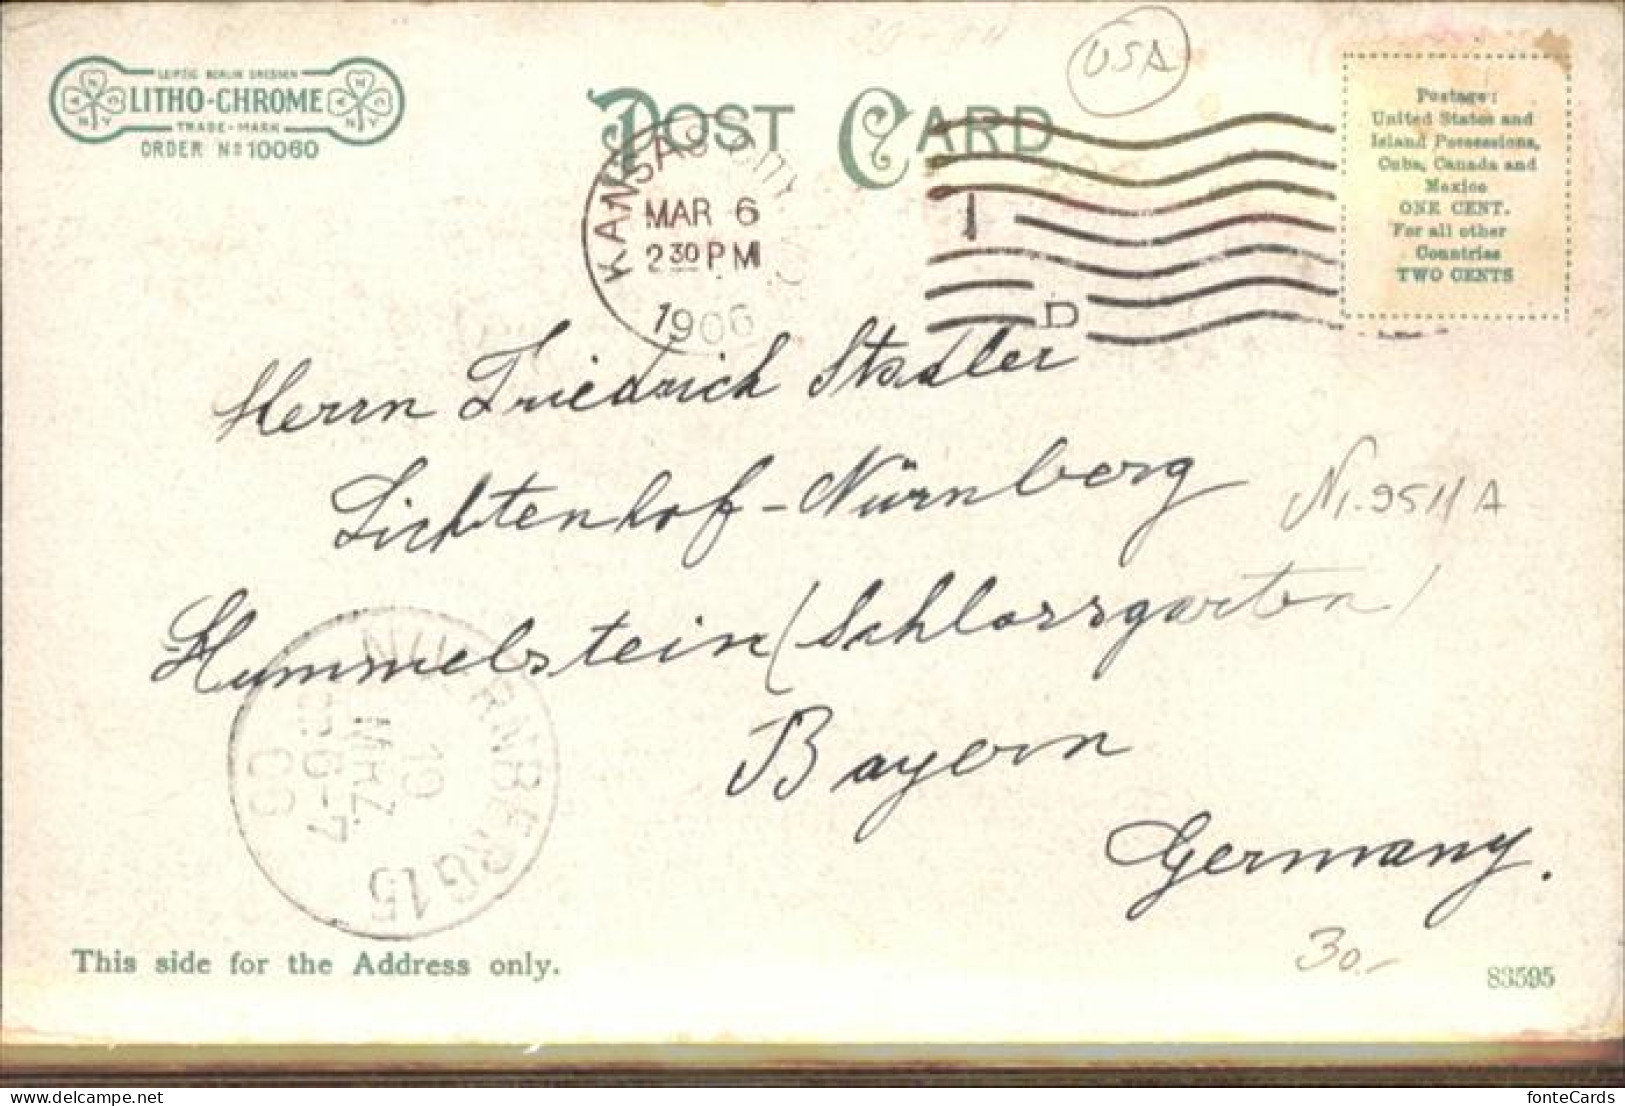 LEIPZIG BERLIN DRESDEN
LITHO-CHROME
TRADE-MARK
ORDER No 10060
POST CARD
USA
KANSAS CITY
MAR 6
2 30 PM
1906
I
D
Postage:
United States and
Island Possessions,
Cuba, Canada and
Mexico
ONE CENT.
For all other
Countries
TWO CENTS
Herrn Friedrich Stadler
Lichtenhof-Nürnberg
Nr. 9511 A
Hummelstein (Schlossgarten)
Bayern
Germany.
NUERNBERG 15
19
MRZ
6-7
06
This side for the Address only.
30.-
83595
fonteCards